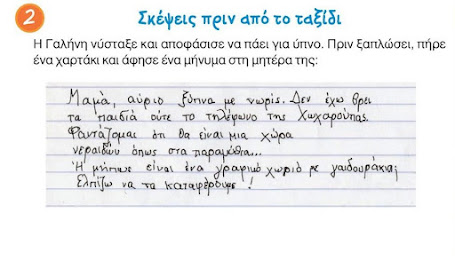 2
Σκέψεις πριν από το ταξίδι
Η Γαλήνη νύσταξε και αποφάσισε να πάει για ύπνο. Πριν ξαπλώσει, πήρε
ένα χαρτάκι και άφησε ένα μήνυμα στη μητέρα της:
Μαμά, αύριο ξύπνα με νωρίς. Δεν έχω βρει
τα παιδιά ούτε το τηλέφωνο της Χωχαρούπας.
Φαντάζομαι ότι θα είναι μια χώρα
νεραϊδών όπως στα παραμύθια...
Ή μήπως είναι ένα γραφικό χωριό με γαϊδουράκια;
Ελπίζω να τα καταφέρουμε!